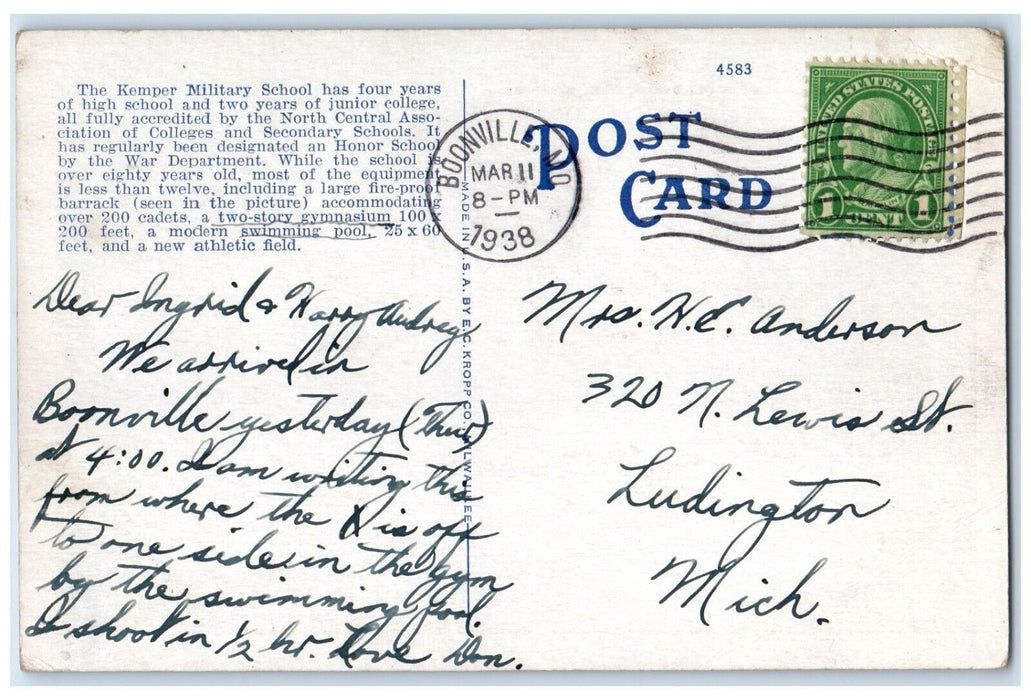 The Kemper Military School has four years
of high school and two years of junior college,
all fully accredited by the North Central Asso-
ciation of Colleges and Secondary Schools. It
has regularly been designated an Honor School
by the War Department. While the school is
over eighty years old, most of the equipment
is less than twelve, including a large fire-proof
barrack (seen in the picture) accommodating
over 200 cadets, a two-story gymnasium 100 x
200 feet, a modern swimming pool, 25 x 60
feet, and a new athletic field.
Dear Ingrid & Harry Audrey
We arrived in
Boonville yesterday (Thur)
at 4:00. I am writing this
from where the X is off
to one side in the gym
by the swimming pool.
I shoot in 1/2 hr. Love Don.
MADE IN U.S.A. BY E.C. KROPP CO., MILWAUKEE
BOONVILLE, MO
MAR 11
8-PM
1938
4583
POST
CARD
UNITED STATES POSTAGE
1 CENT 1
Mrs. H.E. Anderson
320 N. Lewis St.
Ludington
Mich.